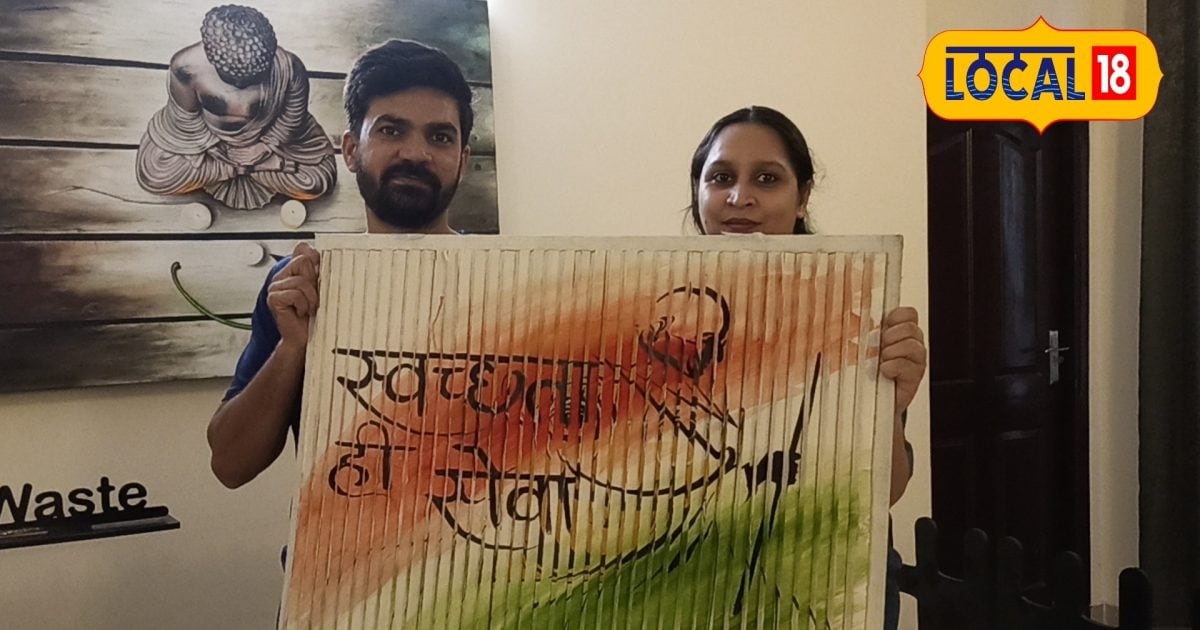 LOCAL 18
स्वच्छता
ही सेवा
Waste